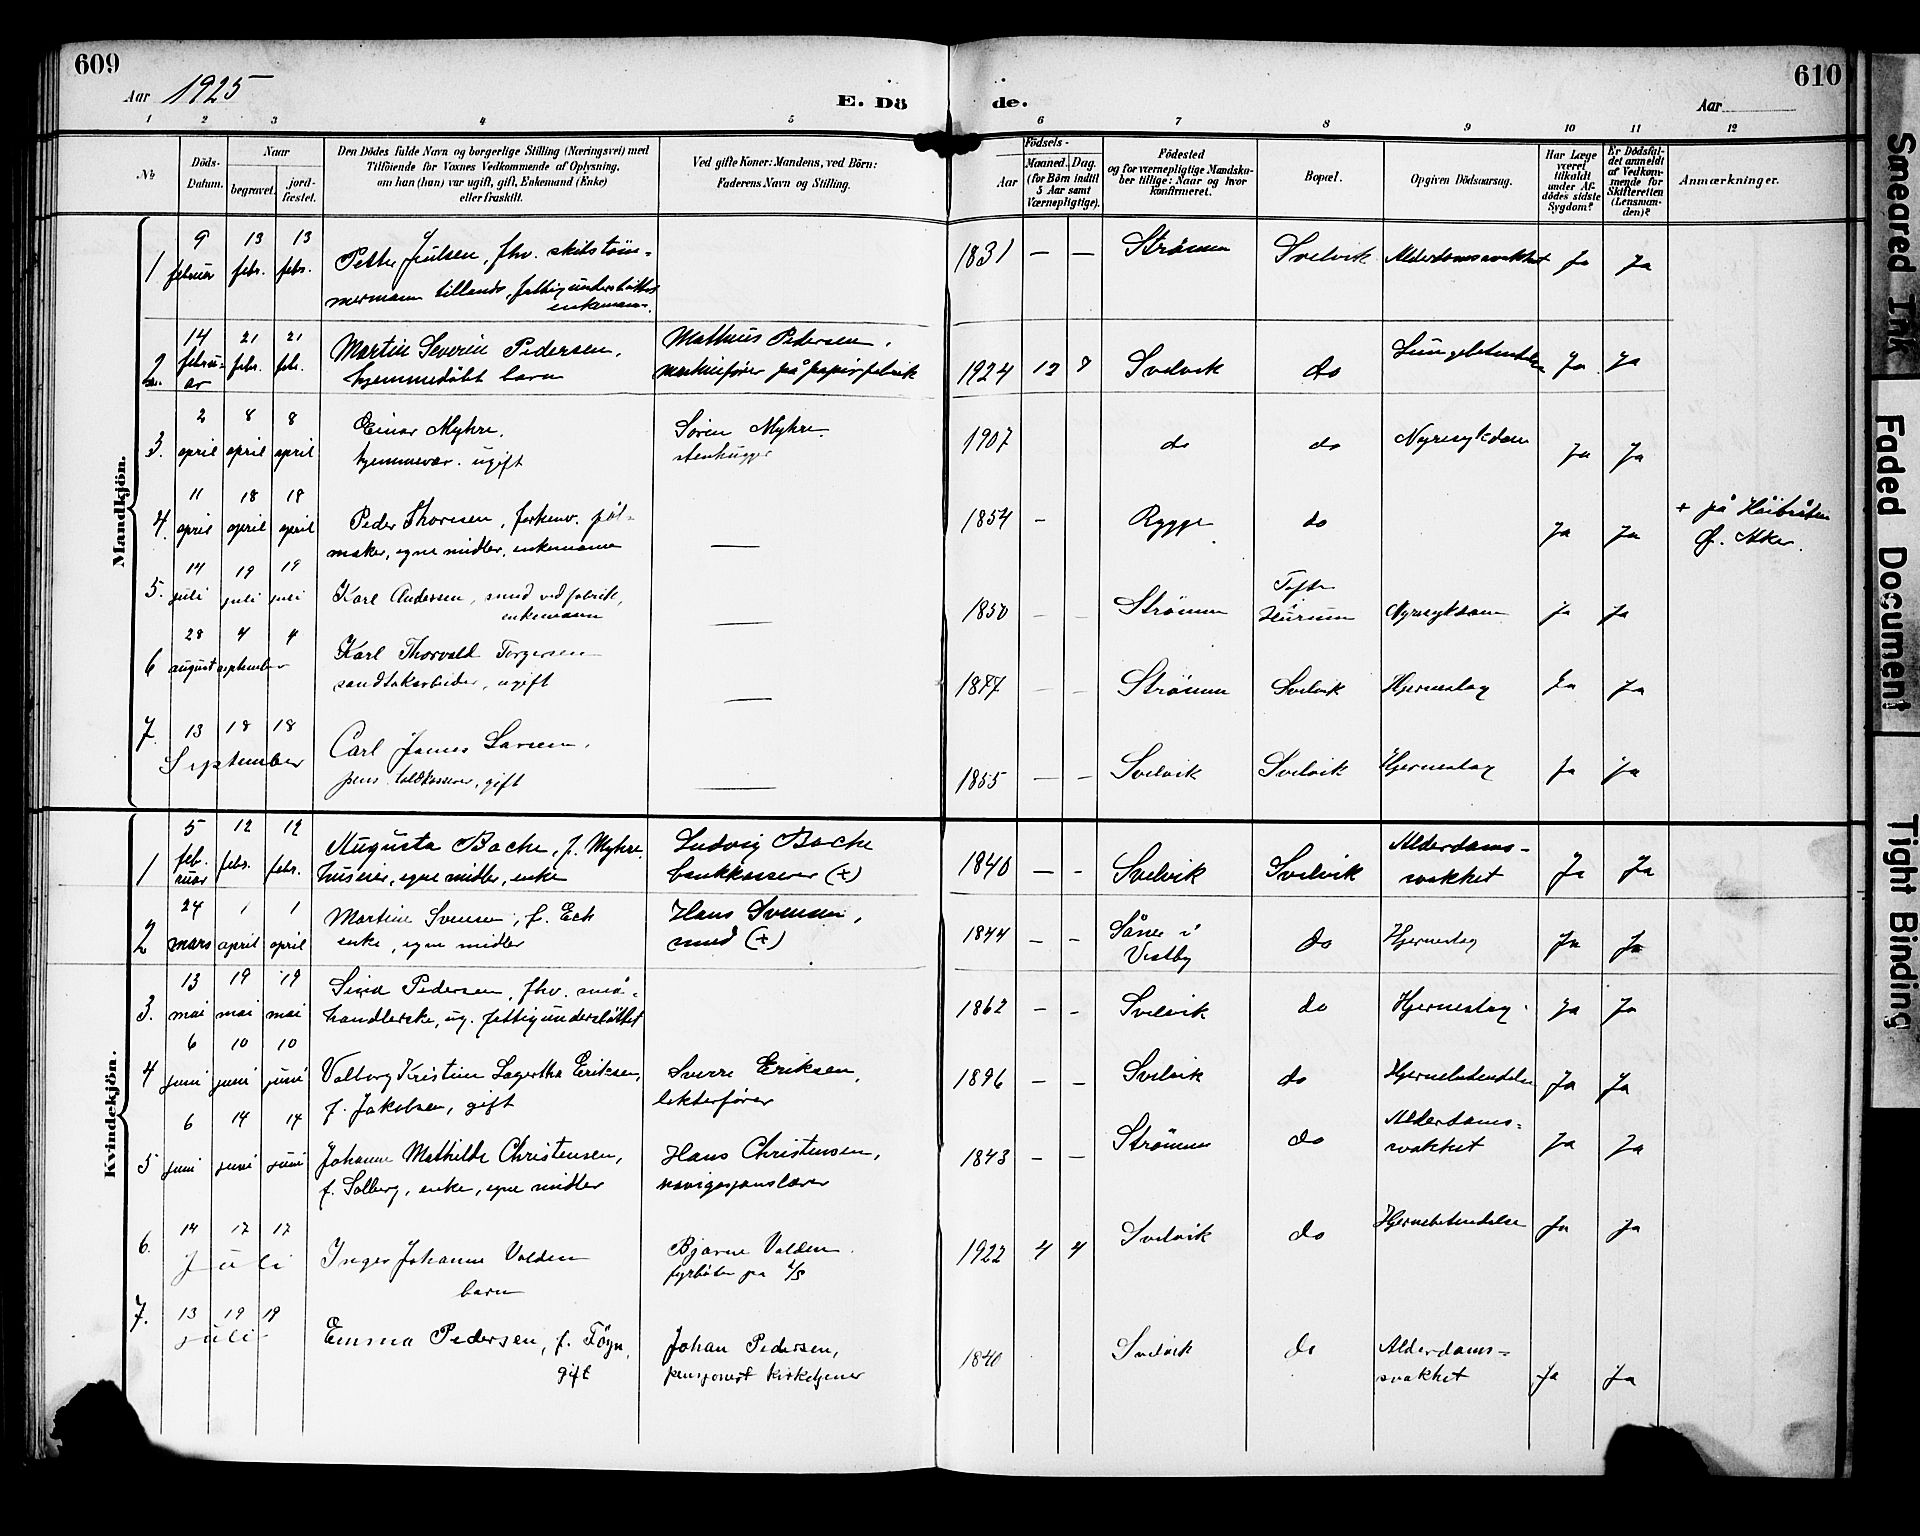 609
Aar 1925
E. Dö
de.
610
Aar
1 2 3 4 5 6 7 8 9 10 11 12
No
Döds-Datum.
Naar
begravet.
jord-fæstet.
Den Dödes fulde Navn og borgerlige Stilling (Næringsvei) med
Tilföiende for Voxnes Vedkommende af Oplysning,
om han (hun) var ugift, gift, Enkemand (Enke)
eller fraskilt.
Ved gifte Koner: Mandens, ved Börn:
Faderens Navn og Stilling.
Födsels-
Aar
Maaned. Dag.
(for Börn indtil
5 Aar samt
Værnepligtige).
Födested
og for værnepligtige Mandska-
ber tillige: Naar og hvor
konfirmeret.
Bopæl.
Opgiven Dödsaarsag.
Har Læge
været
tilkaldt
under Af-
dödes sidste
Sygdom?
Er Dödsfal-
det anmeldt
af Vedkom-
mende for
Skifteretten
(Lensman-
den)?
Anmærkninger.
Mandkjön.
1 9 februar 13 febr. 13 febr. Petter Juulsen, fhv. skibstöm-
mermann tillands, fattigunderstöttet
enkemann.
1831 — — Strömm Svelvik Alderdomssvakhet Ja Ja
2 14 februar 21 febr. 21 febr. Martin Severin Pedersen,
hjemmedöbt barn
Mathius Pedersen,
maskinfører på papirfabrik
1924 12 9 Svelvik do Lungebetendelse Ja Ja
3. 2 april 8 april 8 april Einar Myhre.
hjemmevær. ugift
Søren Myhre.
stenhugger
1907 do do Nyresykdom Ja Ja
4. 11 april 18 april 18 april Peder Thoresen, forhenv. pöl-
maker, egne midler, enkemann
—
1854 - Rygge do Ja Ja + på Höibråten
Ø. Aker.
5. 14 juli 19 juli 19 juli Karl Andersen, smed ved fabrik,
enkemann
—
1850 - - Strömm Tofte
Hurum Nyresykdom ja ja
6 28 august 4 september 4 Karl Thorvald Torgersen
sandtakarbeider, ugift
—
1877 - - Strömm Svelvik Hjerneslag Ja Ja
7. 13 18 18 September Carl James Larsen,
pens. toldkasserer, gift
—
1855 — - Svelvik Svelvik Hjerneslag Ja ja
Kvindekjön.
1 5 februar 12 febr. 12 febr. Augusta Bache, f. Myhre.
huseier, egne midler, enke
Ludvig Bache
bankkasserer (+)
1840 — - Svelvik Svelvik Alderdoms-
svakhet Ja Ja
2 24 mars 1 april 1 april Martine Svensen, f. Eck
enke, egne midler
Hans Svensen,
smed (+)
1844 - - Såner i
Vestby do Hjerneslag Ja Ja
3. 13 mai 19 mai 19 mai Sina Pedersen, fhv. små-
handlerske, ug. fattigunderstöttet
1862 - - Svelvik do Hjerneslag Ja Ja
4 6 juni 10 juni 10 juni Valborg Kristine Lagertha Eriksen,
f. Jakobsen, gift
Sverre Eriksen,
lekterfører
1896 — - Svelvik do Hjernebetendelse Ja Ja
5 6 juni 14 juni 14 juni Johanne Mathilde Christensen,
f. Solberg, enke, egne midler
Hans Christensen,
navigasjonslærer
1843 — — Strömm do Alderdoms-
svakhet Ja Ja
6. 14 17 17 Juli Inger Johanne Volden
barn
Bjarne Volden.
fyrböter pa
1922 4 4 Svelvik do Hjernebetendelse Ja Ja
7. 13 19 19 juli Emma Pedersen, f. Föyn,
gift
Johan Pedersen,
pensjonert kirketjener
1840 Svelvik do Alderdoms-
svakhet Ja Ja
Smeared Ink
Faded Document
Tight Binding